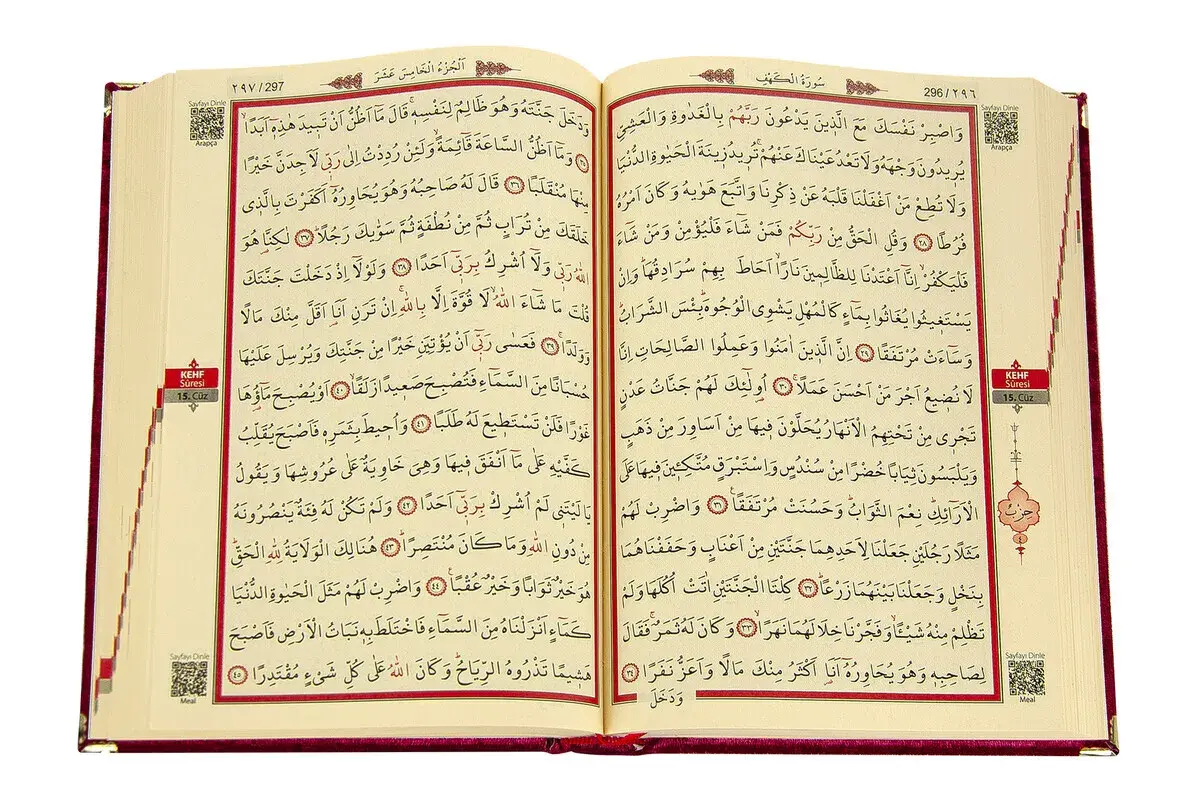 296 / ٢٩٦
سُورَةُ الْكَهْفِ
Sayfayı Dinle
Arapça
وَاصْبِرْ نَفْسَكَ مَعَ الَّذِينَ يَدْعُونَ رَبَّهُمْ بِالْغَدٰوةِ وَالْعَشِيِّ
يُرِيدُونَ وَجْهَهُ وَلَا تَعْدُ عَيْنَاكَ عَنْهُمْۚ تُرِيدُ زِينَةَ الْحَيٰوةِ الدُّنْيَاۚ
وَلَا تُطِعْ مَنْ اَغْفَلْنَا قَلْبَهُ عَنْ ذِكْرِنَا وَاتَّبَعَ هَوٰيهُ وَكَانَ اَمْرُهُ
فُرُطًا ٢٨ وَقُلِ الْحَقُّ مِنْ رَبِّكُمْ فَمَنْ شَٓاءَ فَلْيُؤْمِنْ وَمَنْ شَٓاءَ
فَلْيَكْفُرْۙ اِنَّٓا اَعْتَدْنَا لِلظَّالِمِينَ نَارًاۙ اَحَاطَ بِهِمْ سُرَادِقُهَاۜ وَاِنْ
يَسْتَغِيثُوا يُغَاثُوا بِمَٓاءٍ كَالْمُهْلِ يَشْوِي الْوُجُوهَۜ بِئْسَ الشَّرَابُۜ
وَسَٓاءَتْ مُرْتَفَقًا ٢٩ اِنَّ الَّذِينَ اٰمَنُوا وَعَمِلُوا الصَّالِحَاتِ اِنَّا
لَا نُضِيعُ اَجْرَ مَنْ اَحْسَنَ عَمَلًاۚ ٣٠ اُو۬لٰٓئِكَ لَهُمْ جَنَّاتُ عَدْنٍ
تَجْرِي مِنْ تَحْتِهِمُ الْاَنْهَارُ يُحَلَّوْنَ فِيهَا مِنْ اَسَاوِرَ مِنْ ذَهَبٍ
وَيَلْبَسُونَ ثِيَابًا خُضْرًا مِنْ سُنْدُسٍ وَاِسْتَبْرَقٍ مُتَّكِـِٔينَ فِيهَا عَلَى
الْاَرَٓائِكِۜ نِعْمَ الثَّوَابُۜ وَحَسُنَتْ مُرْتَفَقًا۟ ٣١ وَاضْرِبْ لَهُمْ
مَثَلًا رَجُلَيْنِ جَعَلْنَا لِاَحَدِهِمَا جَنَّتَيْنِ مِنْ اَعْنَابٍ وَحَفَفْنَاهُمَا
بِنَخْلٍ وَجَعَلْنَا بَيْنَهُمَا زَرْعًاۜ ٣٢ كِلْتَا الْجَنَّتَيْنِ اٰتَتْ اُكُلَهَا وَلَمْ
تَظْلِمْ مِنْهُ شَيْـًٔاۙ وَفَجَّرْنَا خِلَالَهُمَا نَهَرًاۙ ٣٣ وَكَانَ لَهُ ثَمَرٌۚ فَقَالَ
لِصَاحِبِهِ وَهُوَ يُحَاوِرُهُٓ اَنَا۬ اَكْثَرُ مِنْكَ مَالًا وَاَعَزُّ نَفَرًا ٣٤
وَدَخَلَ
KEHF
Sûresi
15. Cüz
حزب
٤
Sayfayı Dinle
Meal
٢٩٧ / 297
اَلْجُزْءُ الْخَامِسَ عَشَرَ
Sayfayı Dinle
Arapça
وَدَخَلَ جَنَّتَهُ وَهُوَ ظَالِمٌ لِنَفْسِهِۚ قَالَ مَٓا اَظُنُّ اَنْ تَبِيدَ هٰذِهِٓ اَبَدًاۙ
٣٥ وَمَٓا اَظُنُّ السَّاعَةَ قَٓائِمَةًۙ وَلَئِنْ رُدِدْتُ اِلٰى رَبِّي لَاَجِدَنَّ خَيْرًا
مِنْهَا مُنْقَلَبًا ٣٦ قَالَ لَهُ صَاحِبُهُ وَهُوَ يُحَاوِرُهُٓ اَكَفَرْتَ بِالَّذِي
خَلَقَكَ مِنْ تُرَابٍ ثُمَّ مِنْ نُطْفَةٍ ثُمَّ سَوّٰيكَ رَجُلًاۜ ٣٧ لٰكِنَّا۬ هُوَ
اللّٰهُ رَبِّي وَلَٓا اُشْرِكُ بِرَبِّٓي اَحَدًا ٣٨ وَلَوْلَٓا اِذْ دَخَلْتَ جَنَّتَكَ
قُلْتَ مَا شَٓاءَ اللّٰهُۙ لَا قُوَّةَ اِلَّا بِاللّٰهِۚ اِنْ تَرَنِ اَنَا۬ اَقَلَّ مِنْكَ مَالًا
وَوَلَدًاۚ ٣٩ فَعَسٰى رَبِّٓي اَنْ يُؤْتِيَنِ خَيْرًا مِنْ جَنَّتِكَ وَيُرْسِلَ عَلَيْهَا
حُسْبَانًا مِنَ السَّمَٓاءِ فَتُصْبِحَ صَعِيدًا زَلَقًاۙ ٤٠ اَوْ يُصْبِحَ مَٓاؤُ۬هَا
غَوْرًا فَلَنْ تَسْتَطِيعَ لَهُ طَلَبًا ٤١ وَاُحِيطَ بِثَمَرِهِ فَاَصْبَحَ يُقَلِّبُ
كَفَّيْهِ عَلٰى مَٓا اَنْفَقَ فِيهَا وَهِيَ خَاوِيَةٌ عَلٰى عُرُوشِهَا وَيَقُولُ
يَا لَيْتَنِي لَمْ اُشْرِكْ بِرَبِّٓي اَحَدًا ٤٢ وَلَمْ تَكُنْ لَهُ فِئَةٌ يَنْصُرُونَهُ
مِنْ دُونِ اللّٰهِ وَمَا كَانَ مُنْتَصِرًاۜ ٤٣ هُنَالِكَ الْوَلَايَةُ لِلّٰهِ الْحَقِّۜ
هُوَ خَيْرٌ ثَوَابًا وَخَيْرٌ عُقْبًا۟ ٤٤ وَاضْرِبْ لَهُمْ مَثَلَ الْحَيٰوةِ الدُّنْيَا
كَمَٓاءٍ اَنْزَلْنَاهُ مِنَ السَّمَٓاءِ فَاخْتَلَطَ بِهِ نَبَاتُ الْاَرْضِ فَاَصْبَحَ
هَشِيمًا تَذْرُوهُ الرِّيَاحُۜ وَكَانَ اللّٰهُ عَلٰى كُلِّ شَيْءٍ مُقْتَدِرًا ٤٥
KEHF
Sûresi
15. Cüz
Sayfayı Dinle
Meal